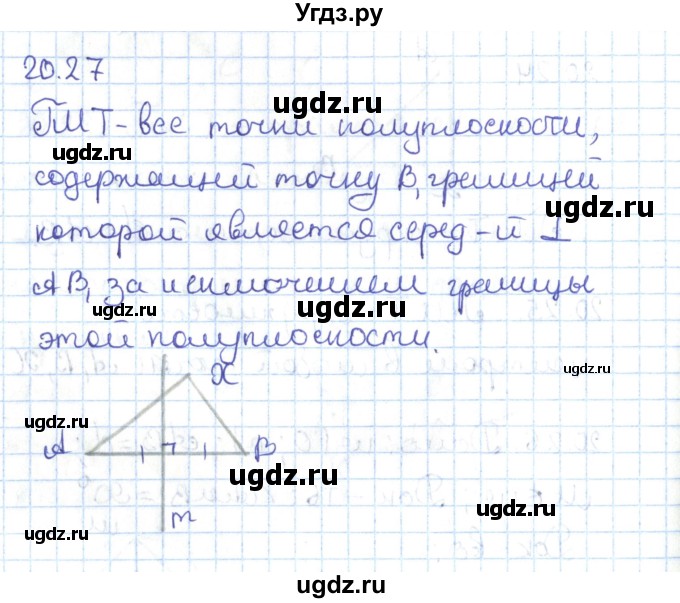 Угдз.ру
20.27
ГМТ - все точки полуплоскости,
содержащей точку B, границей
которой является серед-й ⊥
AB, за исключением границы
этой полуплоскости.
X
A B
m
ugdz.ru
ugdz.ru
ugdz.ru
ugdz.ru
ugdz.ru
ugdz.ru
ugdz.ru
ugdz.ru
ugdz.ru
ugdz.ru
ugdz.ru